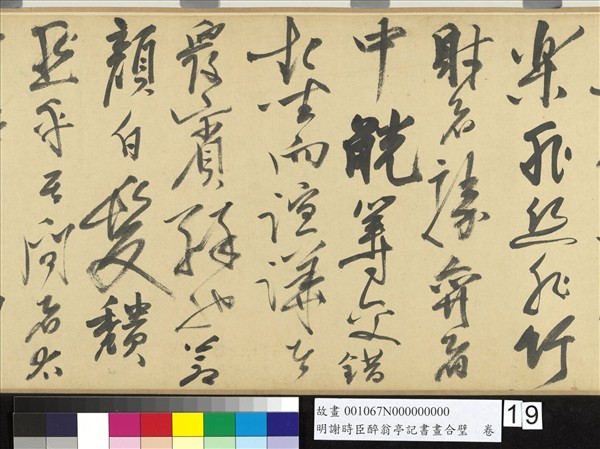 樂非絲非竹
射者勝弈者
中觥籌交錯
起坐而諠譁者
眾賓歡也蒼
顏白髮頹
然乎其間者太
故畫 001067N000000000
明謝時臣醉翁亭記書畫合璧 卷
19